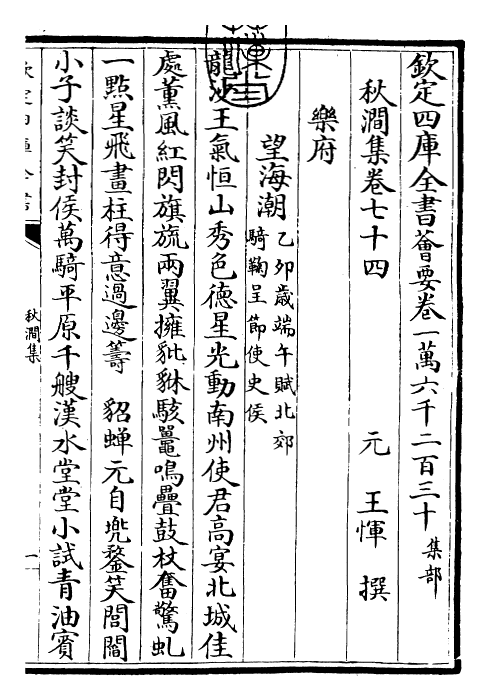 欽定四庫全書薈要卷一萬六千二百三十 集部
秋澗集卷七十四 元 王惲 撰
樂府
望海潮 乙夘歲端午賦北郊
騎鞠呈節使史侯
龍沙王氣恒山秀色德星光動南州使君高宴北城佳
處薰風紅閃旗旒兩翼擁貔貅駭鼍鳴疊鼓杖奮驚虬
一㸃星飛畫柱得意過邊籌 貂蟬元自兠鍪笑閭閻
小子談笑封侯萬騎平原千艘漢水堂堂小試青油賓
秋澗集
一